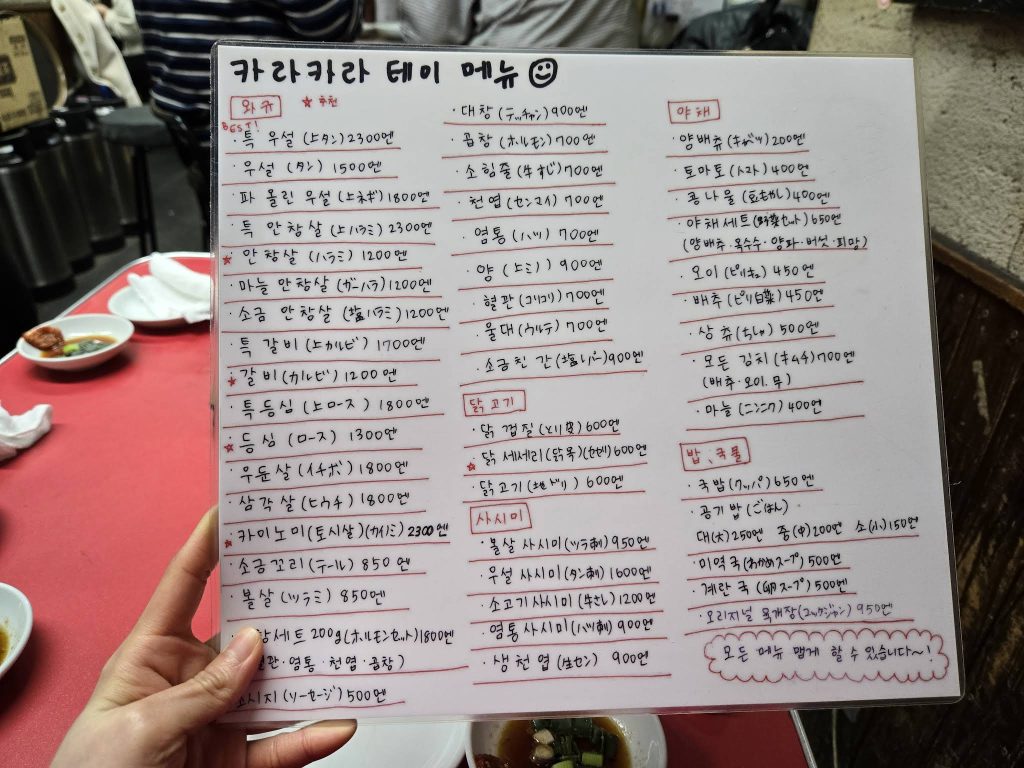 카라카라 테이 메뉴
와규 ★추천
BEST!
·특 우설 (上タン) 2300엔
·우설 (タン) 1500엔
·파 올린 우설 (上ネギ) 1800엔
·특 안창살 (上ハラミ) 2300엔
★안창살 (ハラミ) 1200엔
·마늘 안창살 (ガーハラ) 1200엔
·소금 안창살 (塩ハラミ) 1200엔
·특 갈비 (上カルビ) 1700엔
★갈비 (カルビ) 1200엔
·특등심 (上ロース) 1800엔
★등심 (ロース) 1300엔
·우둔살 (イチボ) 1800엔
·삼각살 (ヒウチ) 1800엔
★카이노미(토시살)(カイノミ) 2300엔
·소금꼬리 (テール) 850엔
·볼살 (ツラミ) 850엔
세트 200g (ホルモンセット) 1800엔
·염통·천엽·곱창)
소시지 (ソーセージ) 500엔
·대창 (テッチャン) 900엔
·곱창 (ホルモン) 700엔
·소힘줄 (牛すじ) 700엔
·천엽 (センマイ) 700엔
·염통 (ハツ) 700엔
·양 (上ミノ) 900엔
·혈관 (コリコリ) 700엔
·울대 (ウルテ) 700엔
·소금친 간 (塩レバー) 900엔
닭고기
·닭 껍질 (とり皮) 600엔
★닭 세세리 (닭목) (セセリ) 600엔
·닭고기 (地ドリ) 600엔
사시미
·볼살 사시미 (ツラ刺) 950엔
·우설 사시미 (タン刺) 1600엔
·소고기 사시미 (牛さし) 1200엔
·염통 사시미 (ハツ刺) 900엔
·생천엽 (生セン) 900엔
야채
·양배츄 (キャベツ) 200엔
·토마토 (トマト) 400엔
·콩나물 (豆もやし) 400엔
·야채세트 (野菜セット) 650엔
(양배추·옥수수·양파·버섯·피망)
·오이 (ピリキュ) 450엔
·배추 (ピリ白菜) 450엔
·상츄 (ちしゃ) 500엔
·모든 김치 (キムチ) 700엔
(배추·오이·무)
·마늘 (ニンニク) 400엔
밥、국물
·국밥 (クッパ) 650엔
·공기밥 (ごはん)
대(大) 250엔 중(中) 200엔 소(小) 150엔
·미역국 (わかめスープ) 500엔
·계란국 (卵スープ) 500엔
·오리지널 육개장 (ユッケジャン) 950엔
모든 메뉴 맵게 할 수 있습니다~!